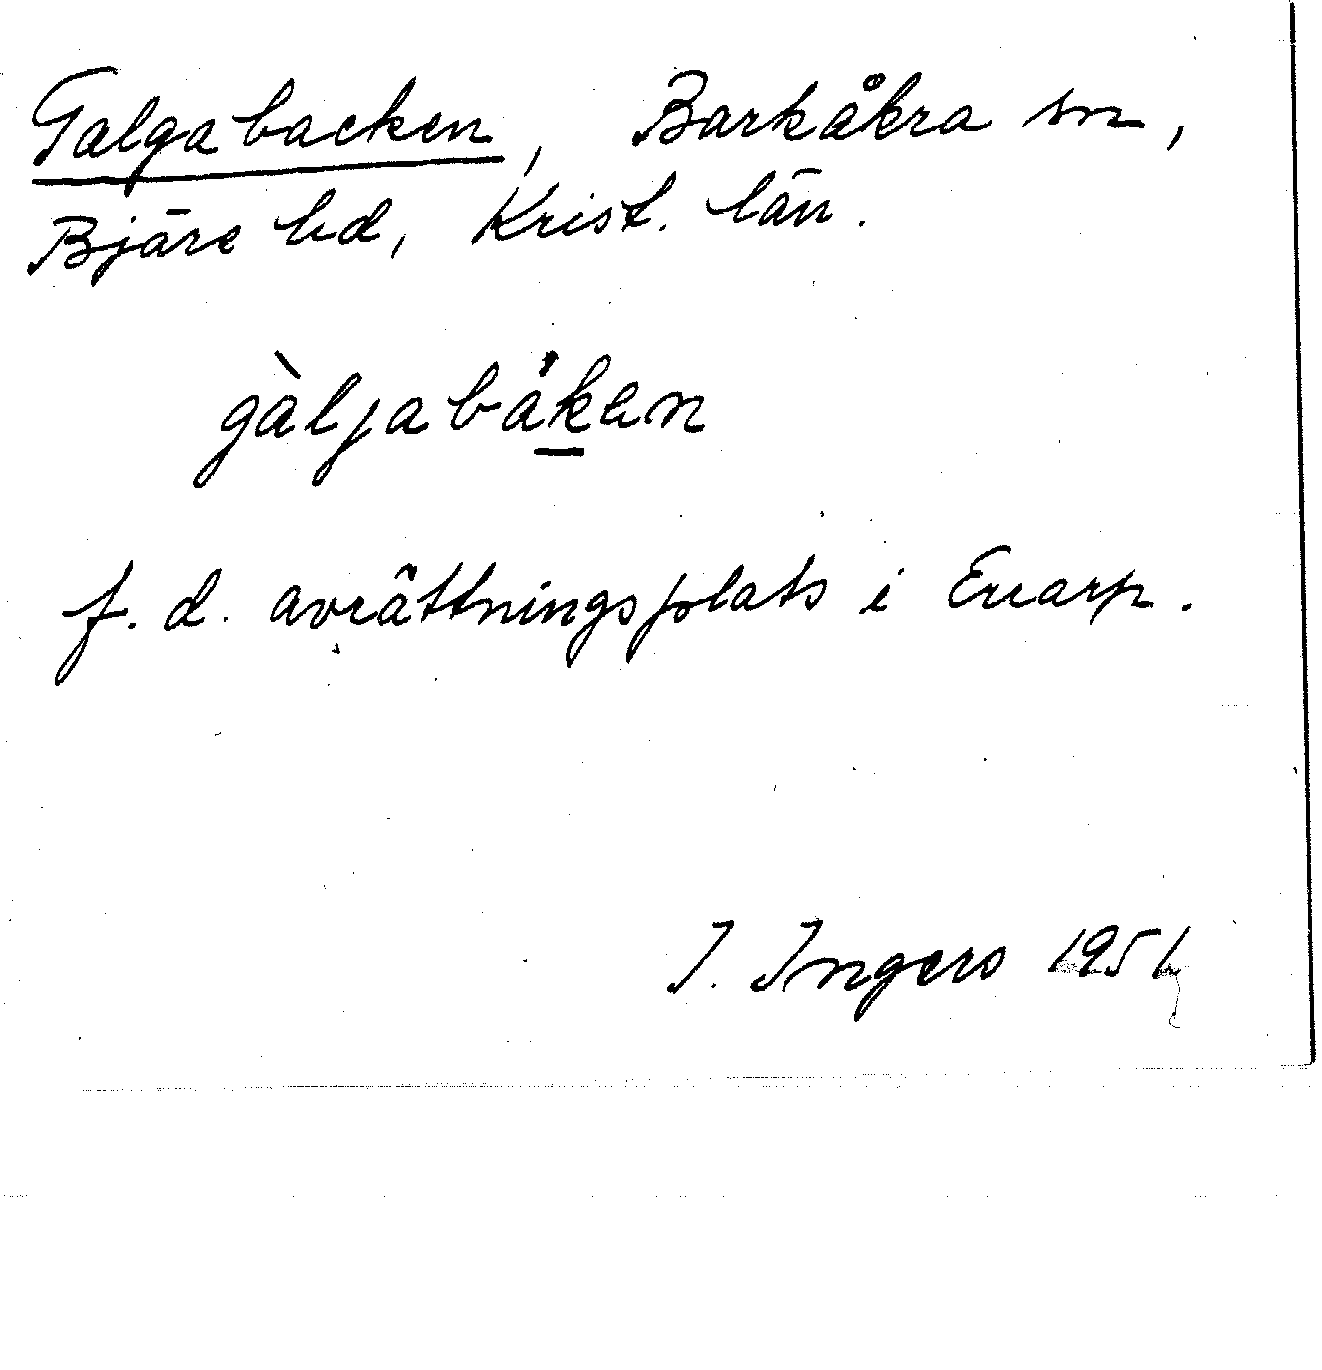 Galgabacken, Barkåkra sn,
Bjäre hd, Krist. län.
gàljabåken
f. d. avrättningsplats i Euarp.
I. Ingers 1951